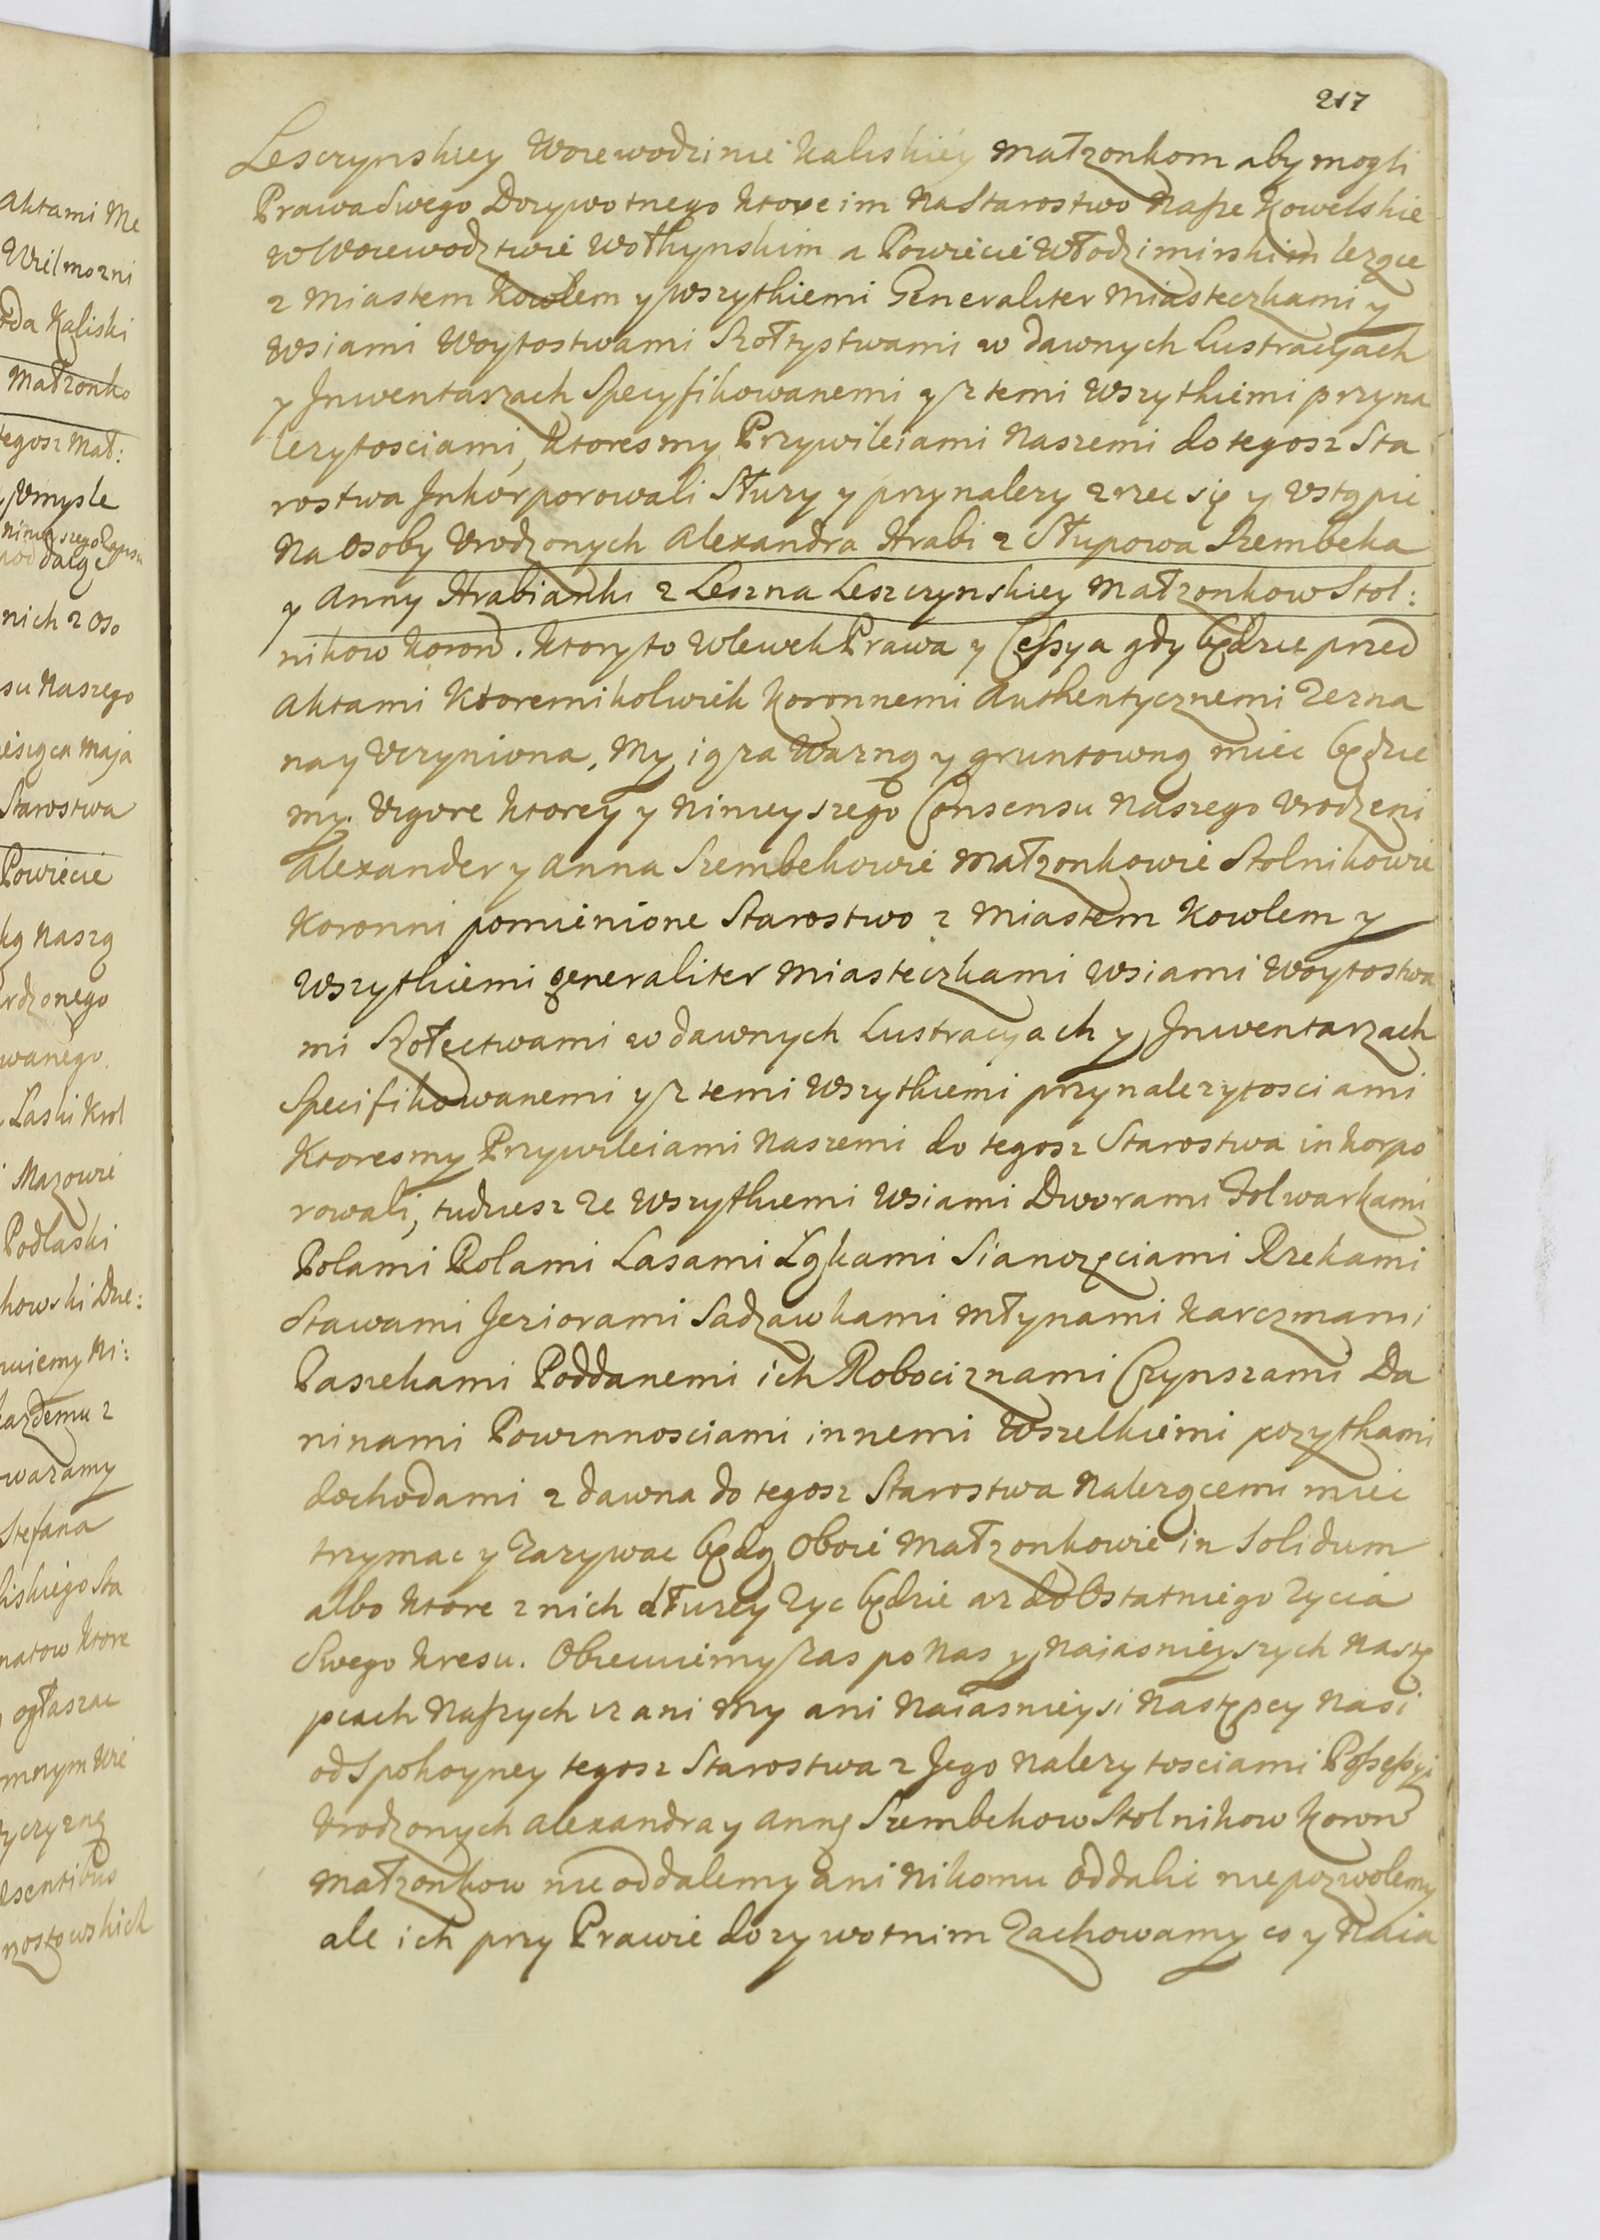 217
Lescrynskiey Woiewodzinie Kaliskiéy Małzonkom aby mogli
Prawa Swego Dozywotnego ktore im na Starostwo Nasze Kowelskie
w Woiewodztwie Wołhynskim a Powiecie Włodzimirskim lezące
z Miastem Kowlem y wszytkiemi Generaliter Miasteczkami y
Wsiami Woytostwami Szołtystwami w dawnych Lustracyach
y Jnwentarzach Specyfikowanemi y z temi Wszytkiemi przyna
lezytosciami, ktoresmy Przywileiami Naszemi do tegosz Sta
rostwa Jnkorporowali Słuzy y przynalezy zrzec się y Vstąpic
Na Osoby Vrodzonych Alexandra Hrabi z Słupowa Szembeka
y Anny Hrabianki z Leszna Leszczynskiey Małzonkow Stol:
nikow Koron. ktory to Wlewek Prawa y Cessya gdy będzie przed
Aktami Ktoremikolwiek Koronnemi Authentycznemi Zezna
na y Vczyniona, My ią za Wazną y gruntowną miec będzie
my. Vigore ktorey y Ninieyszego Consensu Naszego Vrodzeni
Alexander y Anna Szembekowie Małzonkowie Stolnikowie
Koronni pomienione Starostwo z Miastem Kowlem y
Wszytkiemi generaliter Miasteczkami Wsiami Woytostwa
mi Szołectwami w dawnych Lustracyach y Jnwentarzach
Specifikowanemi y z temi Wszytkiemi przynalezytosciami
Ktoresmy Przywileiami Naszemi do tegosz Starostwa inkorpo
rowali, tudziesz Ze Wszytkiemi Wsiami Dworami Folwarkami
Polami Rolami Lasami Łąkami Sianozęciami Rzekami
Stawami Jeziorami Sadzawkami Młynami Karczmami
Pasiekami Poddanemi ich Robociznami Czynszami Da
ninami Powinnosciami innemi Wszelkiemi pozytkami
dochodami z dawna do tegosz Starostwa Nalezącemi miec
trzymac y Zazywac będą Oboie Małzonkowie in Solidum
albo ktore z nich dłuzey Zyc będzie az do Ostatniego Zycia
Swego kresu. Obiecuiemy Zas po Nas y Naiasnieyszych Nastę
pcach Naszych iz ani My ani Naiasnieysi Następcy Nasi
od Spokoyney tegosz Starostwa z Jego Nalezytosciami Possessyi
Vrodzonych Alexandra y Anny Szembekow Stolnikow Koron
Małzonkow nie oddalemy Ani Nikomu Oddalic niepozwolemy
ale ich przy Prawie dozywotnim Zachowamy co y Naia